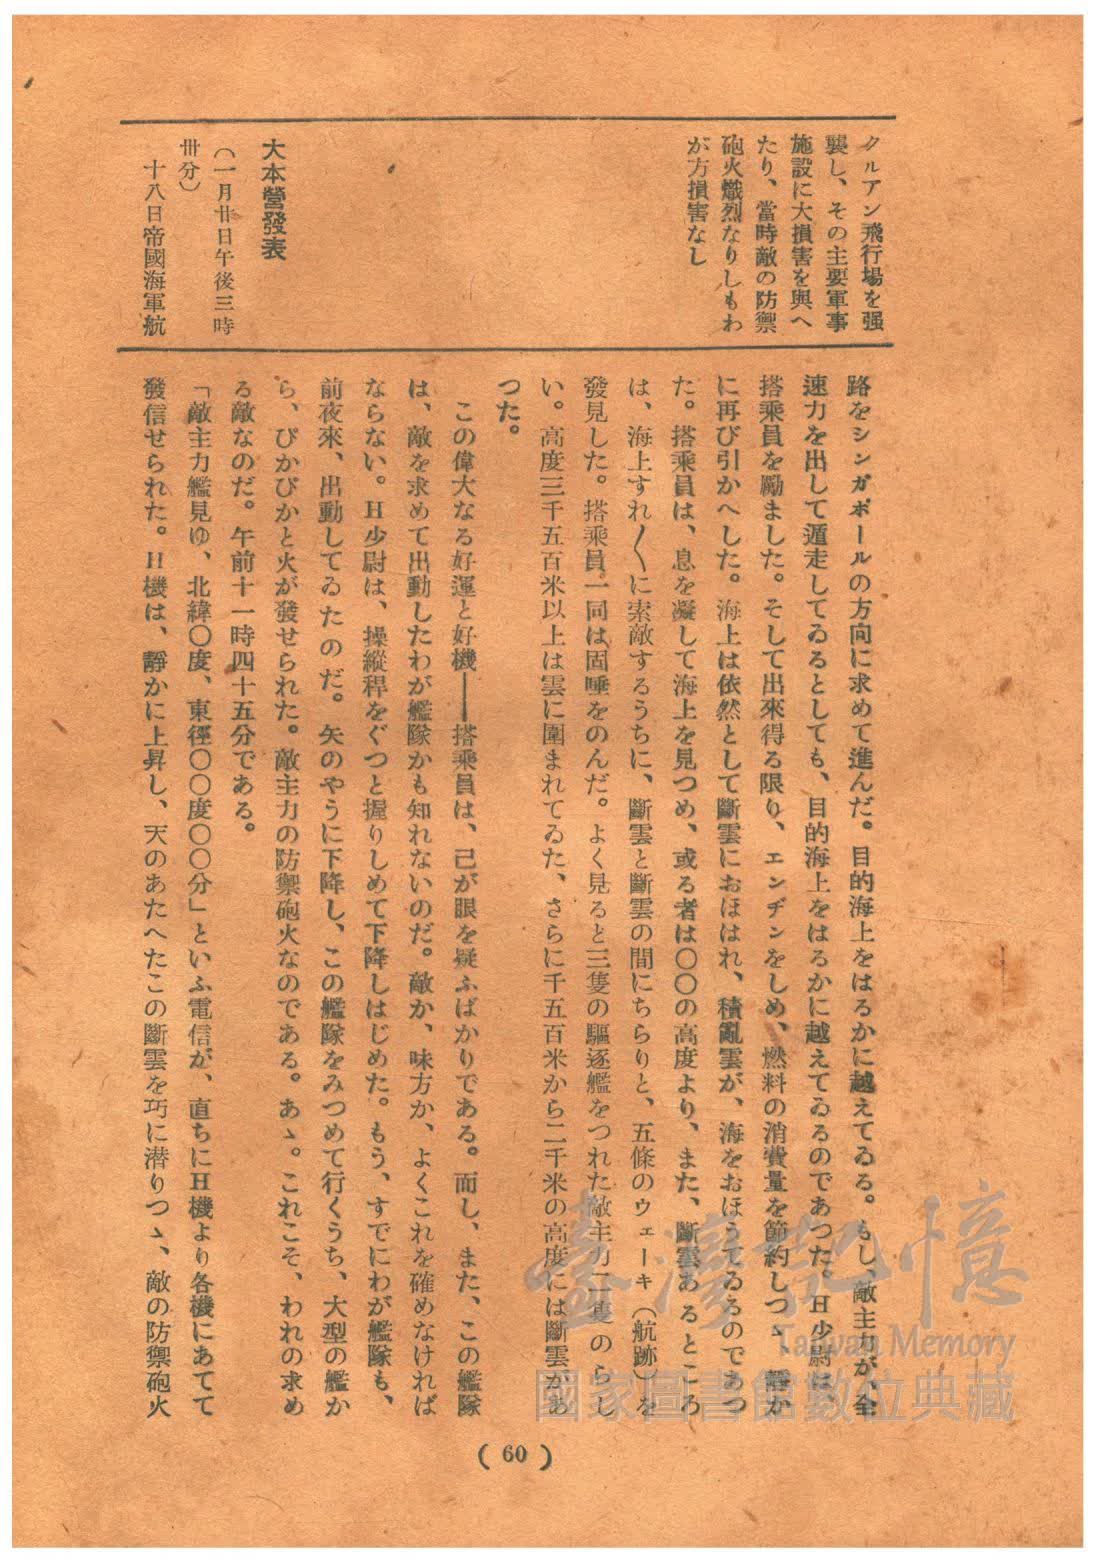 クルアン飛行場を强
襲し、その主要軍事
施設に大損害を與へ
たり、當時敵の防禦
砲火熾烈なりしもわ
が方損害なし
大本營發表
(一月廿日午後三時
卅分)
十八日帝國海軍航
路をシンガポールの方向に求めて進んだ。目的海上をはるかに越えてゐる。もし、敵主力が、全
速力を出して遁走してゐるとしても、目的海上をはるかに越えてゐるのであつた。H少尉は、
搭乘員を勵ました。そして出來得る限り、エンヂンをしめ、燃料の消費量を節約しつゝ、靜か
に再び引かへした。海上は依然として斷雲におほはれ、積亂雲が、海をおほうてゐるのであつ
た。搭乘員は、息を凝して海上を見つめ、或る者は〇〇の高度より、また、斷雲あるところ
は、海上すれ〳〵に索敵するうちに、斷雲と斷雲の間にちらりと、五條のウェーキ(航跡)を
發見した。搭乘員一同は固唾をのんだ。よく見ると三隻の驅逐艦をつれた敵主力二隻のらし
い。高度三千五百米以上は雲に圍まれてゐた、さらに千五百米から二千米の高度には斷雲があ
つた。
この偉大なる好運と好機――搭乘員は、己が眼を疑ふばかりである。而し、また、この艦隊
は、敵を求めて出動したわが艦隊かも知れないのだ。敵か、味方か、よくこれを確めなければ
ならない。H少尉は、操縱稈をぐつと握りしめて下降しはじめた。もう、すでにわが艦隊も、
前夜來、出動してゐたのだ。矢のやうに下降し、この艦隊をみつめて行くうち、大型の艦か
ら、ぴかぴかと火が發せられた。敵主力の防禦砲火なのである。あゝ。これこそ、われの求め
る敵なのだ。午前十一時四十五分である。
「敵主力艦見ゆ、北緯〇度、東徑〇〇度〇〇分」といふ電信が、直ちにH機より各機にあてて
發信せられた。H機は、靜かに上昇し、天のあたへたこの斷雲を巧に潜りつゝ、敵の防禦砲火
(60)
臺灣記憶
Taiwan Memory
國家圖書館數位典藏